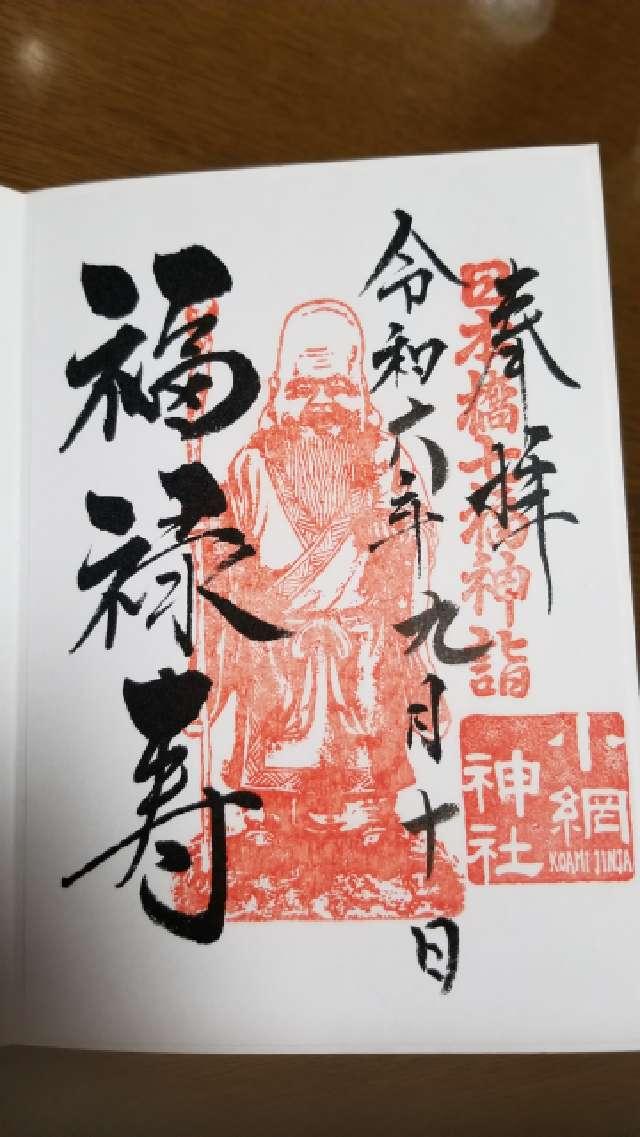 奉拝
日本橋七福神詣
小網
神社
KOAMI JINJA
令和六年九月十日
福禄寿